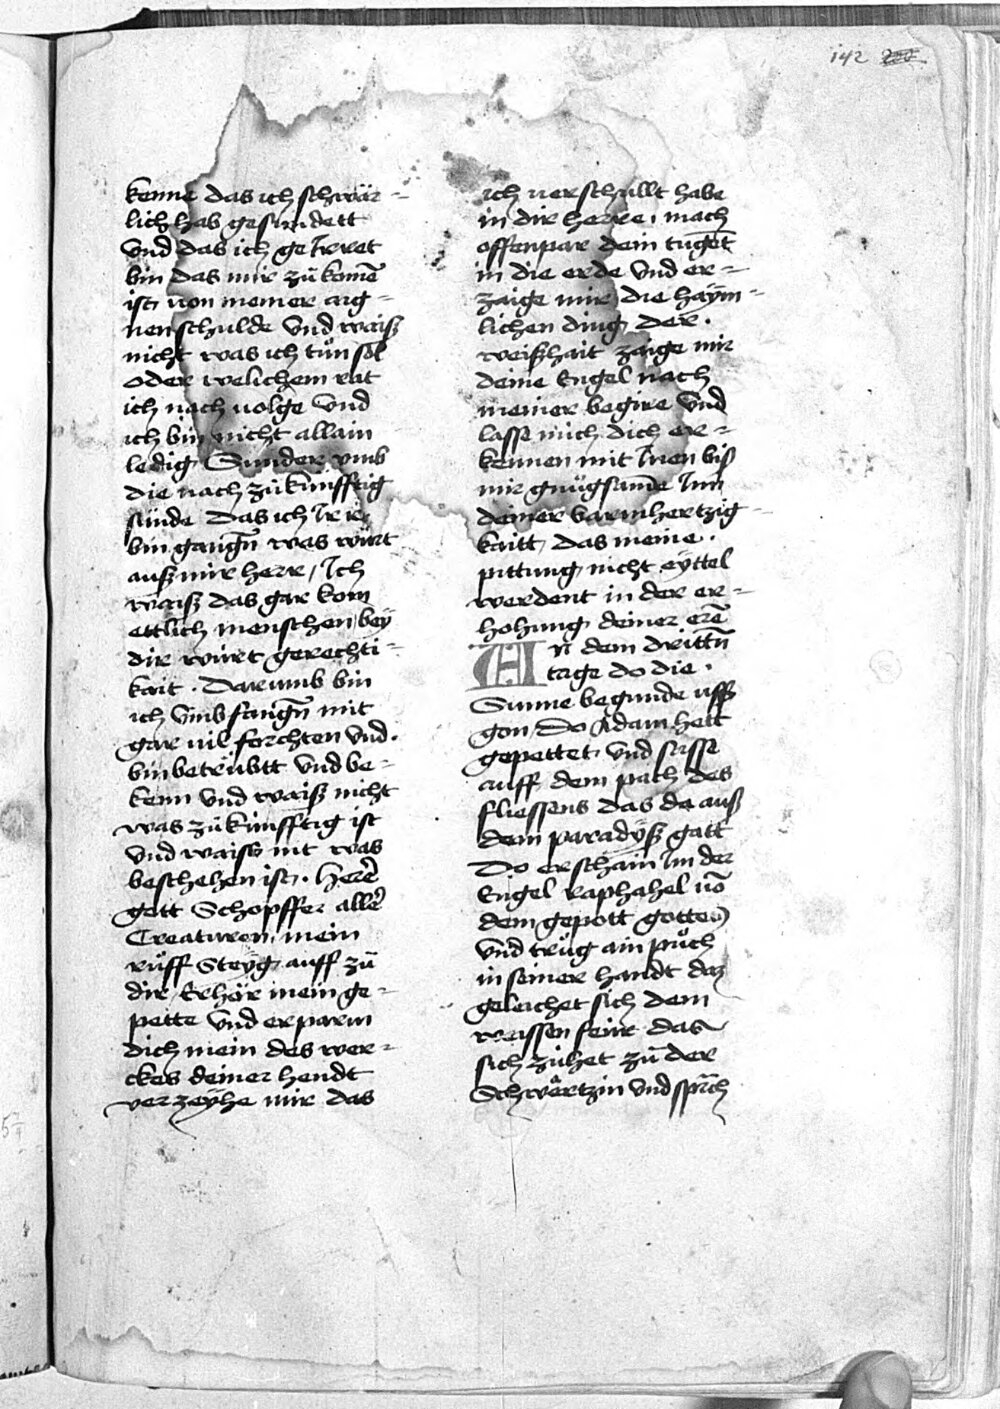 142
kenne das ich schwär-
lich hab gesundett
vnd das ich geIrret
bin das mir zu komē
ist von meiner aig-
nen schulde vnd waiß
nicht was ich tůn sol
oder welichem rat
ich nach volge vnd
ich bin nicht allain
ledig Sunder vmb
die nach zükünfftig
sünde das ich Irr
bin gangn̄ was würt
auß mir herr / Ich
waiß das gar kom
ettlich menschen bey
dir würt gerechti-
kait . Darumb bin
ich vmbfangn̄ mit
gar uil forchten vnd .
bin betrübtt vnd be-
kenn vnd waiß nicht
was zükünfftig ist
vnd waiss nit was
beschehen ist . herr̄e
gott Schopffer aller̄
Creaturen mein
rüff Steyg auff zü
dir Erhör mein ge-
pette vnd erparm
dich mein des wer-
ckes deiner hendt
verzeyhe mir das
ich verschullt habe
in dir herre mach
offenpar dein tugēt
in die erde vnd er-
zaige mir die haym-
lichen ding der .
weißhait zaige mir
deine Engel nach
meiner begire vnd
lasse mich dich er-
kennen mit Inen biß
mir gnügsame Inn
deiner barmhertzig-
kaitt das meine .
pittung nicht eyttel
werdent in der er-
hohung deiner erē
An dem drittn̄
tage do die .
Sunne begunde uff
gon do Adam hett
gepettet vnd sasse
auff dem pach des
fliessens das da auß
dem paradyß gatt
Do erschain Im der
Engel raphahel uō
dem gepott gottes
vnd trůg ain půch
in seiner handt daz
geleichet sich dem
weissen feür das
sich zühet zü der
Schwertzin vnd sprach